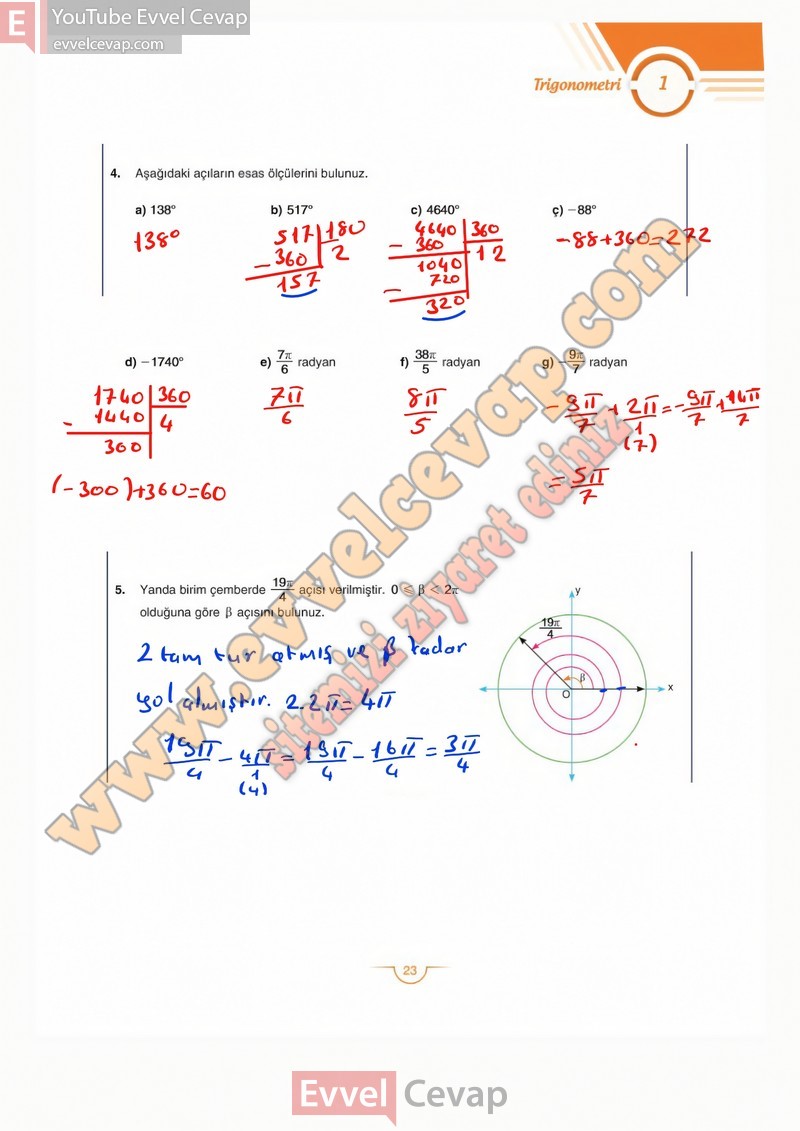 E YouTube Evvel Cevap
evvelcevap.com
Trigonometri 1
4. Aşağıdaki açıların esas ölçülerini bulunuz.
a) 138° b) 517° c) 4640° ç) −88°
138°
517 | 180
− 360 | 2
157
4640 | 360
− 360 | 12
1040
− 720
320
−88+360=272
d) −1740° e) 7π/6 radyan f) 38π/5 radyan g) −9π/7 radyan
1740 | 360
− 1440 | 4
300
(−300)+360=60
7π/6
8π/5
−9π/7 + 2π/1 = −9π/7 + 14π/7
(7)
= 5π/7
5. Yanda birim çemberde 19π/4 açısı verilmiştir. 0 ⩽ β < 2π
olduğuna göre β açısını bulunuz.
2 tam tur atmış ve β kadar
yol almıştır. 2.2π=4π
19π/4 − 4π/1 = 19π/4 − 16π/4 = 3π/4
(4)
y
19π/4
β
O
x
www.evvelcevap.com
sitemizi ziyaret ediniz
23
Evvel Cevap